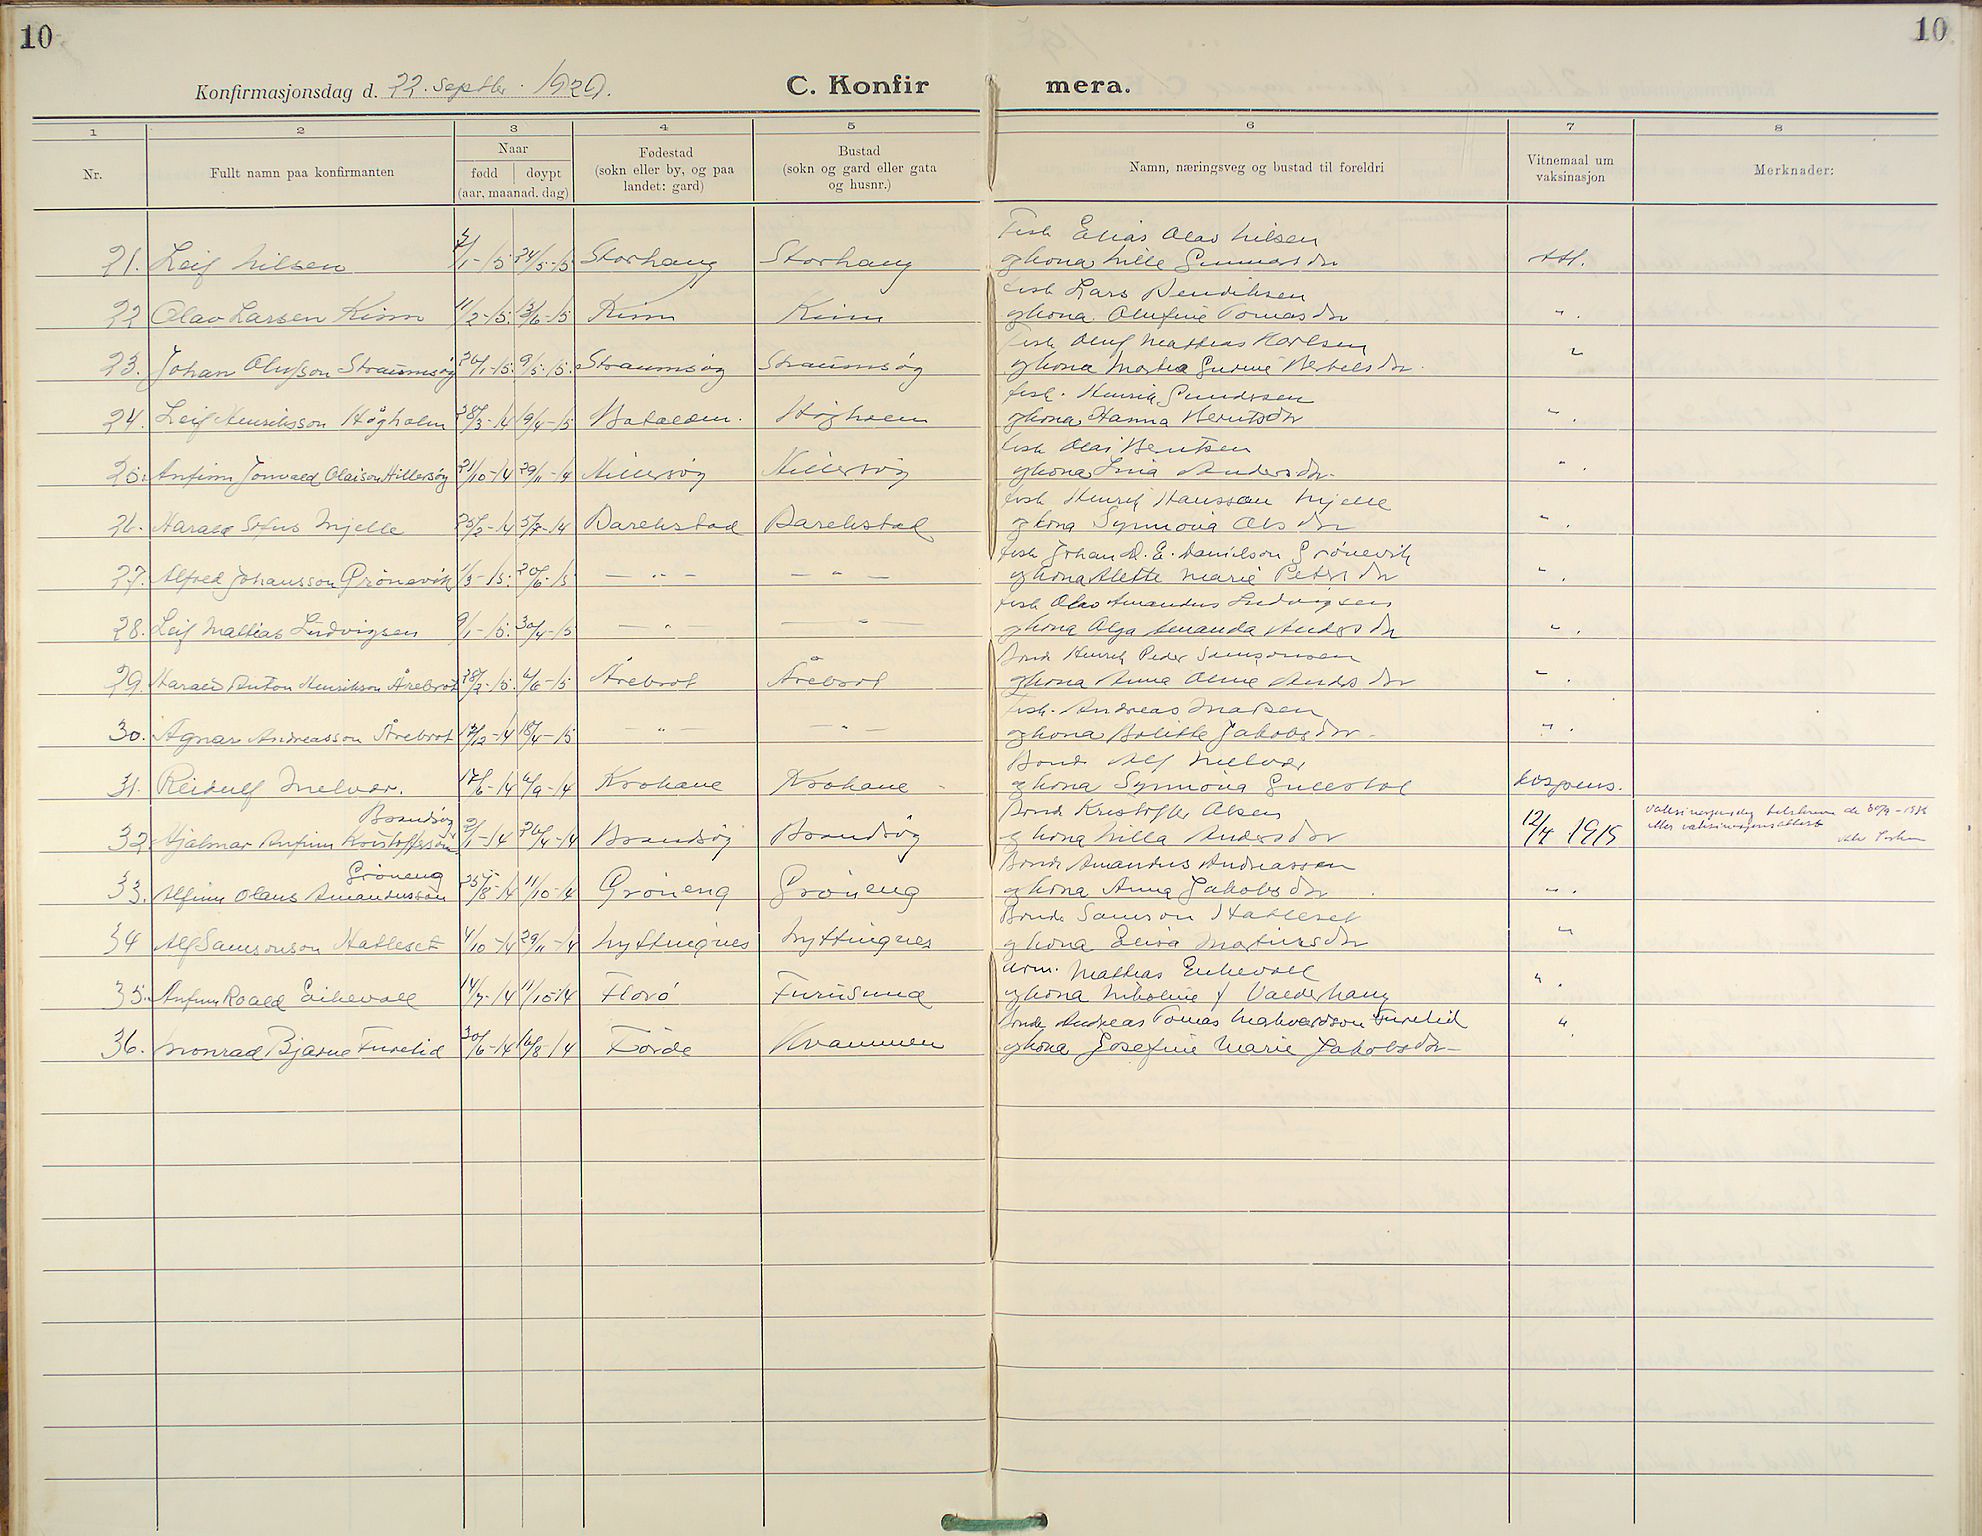 10
10
Konfirmasjonsdag d. 22. Septbr. 1929.
C. Konfirmera.
1 2 3 4 5 6 7 8
Nr.
Fullt namn paa konfirmanten
Naar
fødd døypt
(aar, maanad. dag)
Fødestad
(sokn eller by, og paa
landet: gard)
Bustad
(sokn og gard eller gata
og husnr.)
Namn, næringsveg og bustad til foreldri
Vitnemaal um
vaksinasjon
Merknader:
Fisk Elias Olav Nilsen
21. Leif Nilsen 24/5-15 Storhaug Storhaug og kona Nille Gunnarsdr att.
fisk Lars Hendriksen
22 Olav Larsen Kinn 11/2-15. 13/6-15 Kinn Kinn og kona Olufine Tomasdr " .
Fisk Oluf Mathias Karlsen
23. Johan Olufson Straumsøy 26/1-15. 9/5-15. Straumsøy Straumsøy og kona Marta Gurine Bertelsdr. "
fisk. Henrik Gundersen
24. Leif Henriksson Høgholm 28/3-14 19/4-15 Batalden. og kona Hanna Berntsdr " .
fisk Olai Berntsen
25. Anfinn Jonvald Olaison Hillersøy 21/10-14 29/11-14 Hillersøy Hillersøy og kona Lina Andersdr. " .
fisk Henrik Hansson Mjelle
26. Harald Sofus Mjelle 25/2-14 5/7-14 Barekstad Barekstad og kona Synnøva Olsdr " .
fisk Johan D. E. Danielson Grønevik
27. Alfred Johansson Grønevik 1/3-15. 20/6-15 — " — — " — og kona Alette Marie Petersdr " .
fisk Olav Amandus Ludvigsen
28. Leif Mathias Ludvigsen 9/1-15. 30/4-15 — " — — " og kona Olga Amanda Andersdr " .
Bonde Henrik Peder Samsonsen
29. Harald Anton Henrikson Årebrot 28/2-15. 6/6-15 Årebrot Årebrot og kona Anna Oline Andersdr " .
Fisk. Andreas Madsen
30. Agnar Andreasson Årebrot 18/4-15 — " — — " og kona Bolette Jakobsdr. " .
Bonde Alf Melvær
31. Reidulf Melvær. 17/6-14 6/9-14 Krokane Krokane og kona Synnøva Gullestol dispens.
Brandsøy Bonde Kristoffer Olsen
32. Hjalmar Anfinn Kristofferson 2/1-14 26/4-14 Brandsøy Brandsøy og kona Milla Andersdr 12/4 1915
Grøneng Bonde Amandus Andreassen
33. Alfinn Olaus Amandusson 25/8-14 11/10-14 Grøneng Grøneng og kona Anna Jakobsdr " .
Bonde Samson Hatleset
34 Alf Samsonson Hatleset 4/10-14 29/11-14 Lyttingnes Lyttingnes og kona Elisa Martinsdr "
Mathias Eikevoll
35. Anfinn Roald Eikevoll 14/7-14 11/10-14 Florø Furusund og kona Nikoline f Valderhaug " .
Bonde Andreas Tomas Furelid
36. Monrad Bjarne Furelid 30/6-14 16/8-14 Førde Kvammen og kona Josefine Marie Jakobsdr— " .